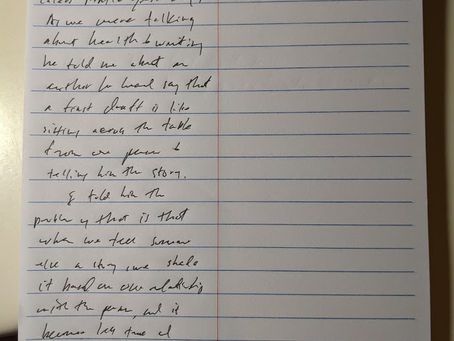 As we were talking
about health & writing
he told me about an
author he heard say that
a first draft is like
sitting across the table
from one person &
telling him the story.
I told him the
problem w/ that is that
when we tell someone
else a story, we shade
it based on our relationship
with the person, and it
becomes less true